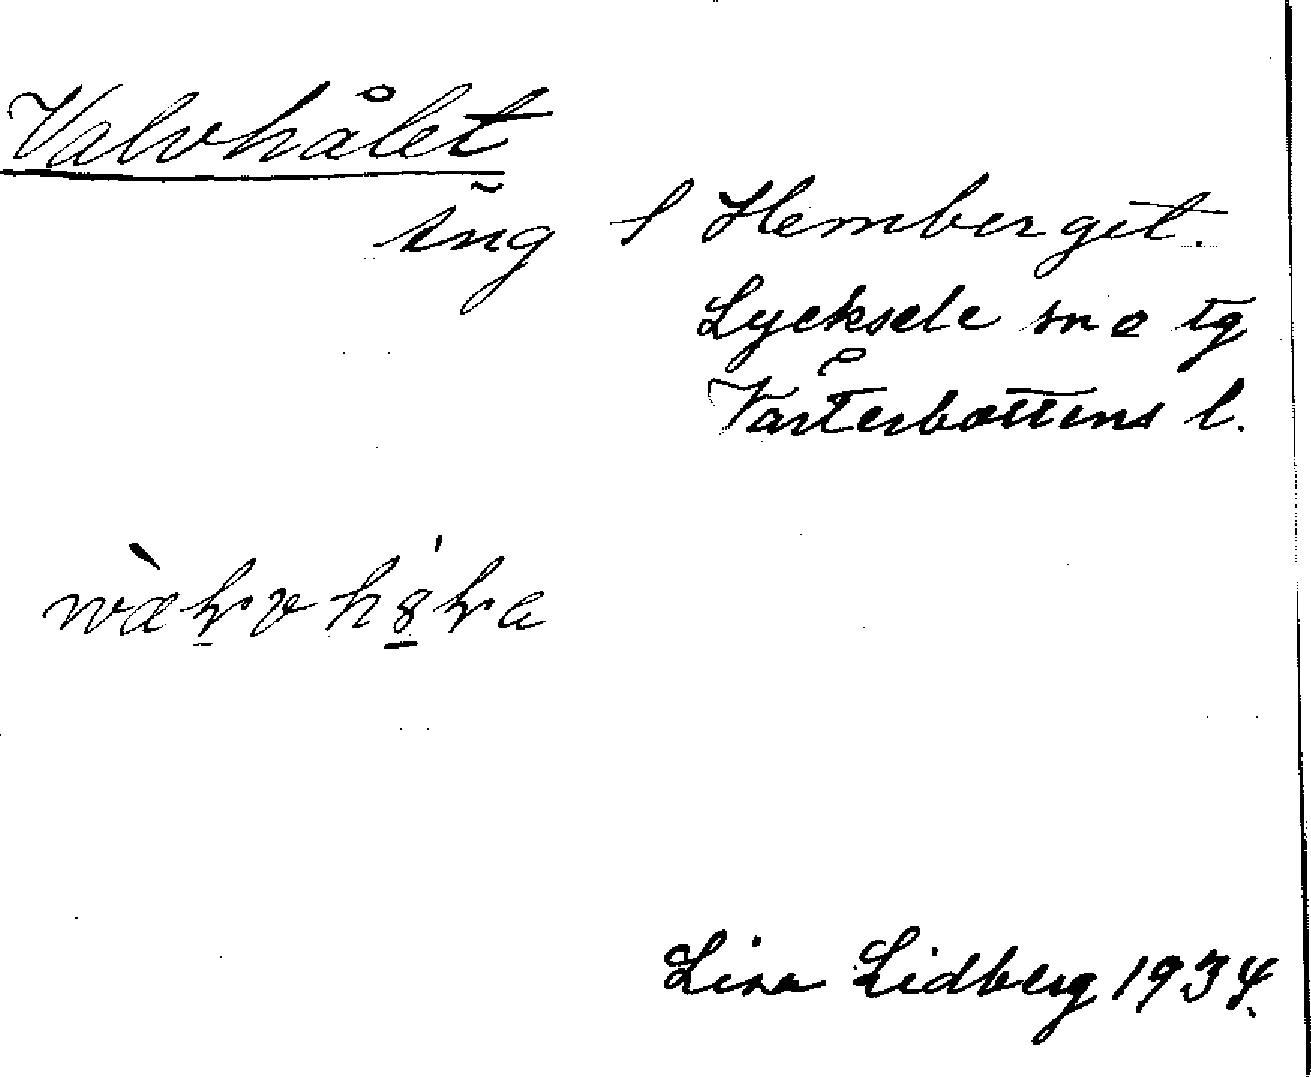 Valvhålet
äng i Hemberget.
Lycksele sn o tg
Västerbottens l.
Lina Lidberg 1934.